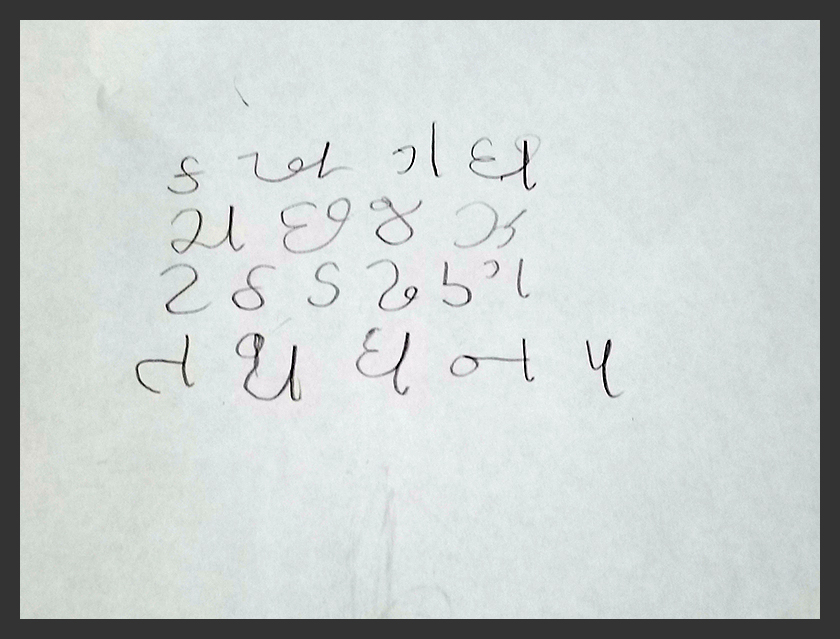 ક ખ ગ ઘ
ચ છ જ ઝ
ટ ઠ ડ ઢ ણ
ત થ ધ ન પ